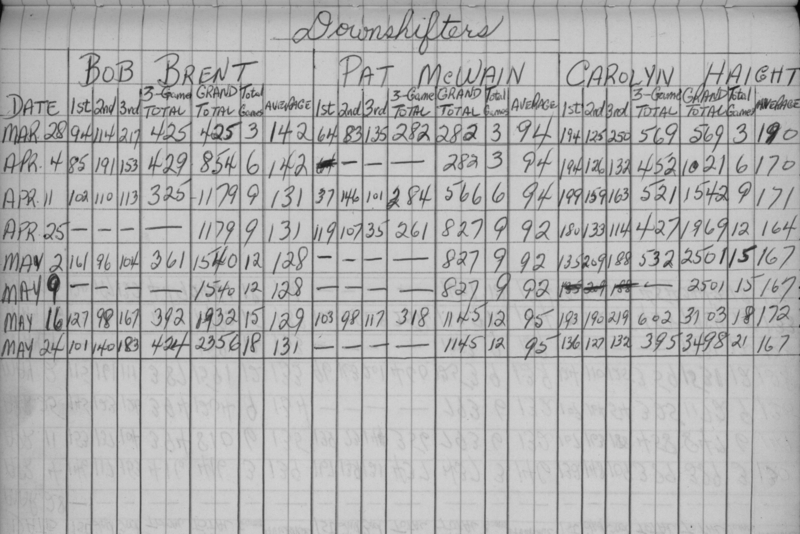 Downshifters
BOB BRENT PAT McWAIN CAROLYN HAIGHT
DATE 1st 2nd 3rd 3-Game TOTAL GRAND TOTAL Total Games AVERAGE 1st 2nd 3rd 3-Game TOTAL GRAND TOTAL Total Games AVERAGE 1st 2nd 3rd 3-Game TOTAL GRAND TOTAL Total Games AVERAGE
MAR. 28 94 114 217 425 425 3 142 64 83 135 282 282 3 94 194 125 250 569 569 3 190
APR. 4 85 191 153 429 854 6 142 — — — 282 3 94 194 126 132 452 1021 6 170
APR. 11 102 110 113 325 1179 9 131 37 146 101 284 566 6 94 199 159 163 521 1542 9 171
APR. 25 — — — — 1179 9 131 119 107 35 261 827 9 92 180 133 114 427 1969 12 164
MAY 2 161 96 104 361 1540 12 128 — — — — 827 9 92 135 209 188 532 2501 15 167
MAY 9 — — — — 1540 12 128 — — — — 827 9 92 135 209 188 — 2501 15 167
MAY 16 127 98 167 392 1932 15 129 103 98 117 318 1145 12 95 193 190 219 602 3103 18 172
MAY 24 101 140 183 424 2356 18 131 — — — — 1145 12 95 136 127 132 395 3498 21 167